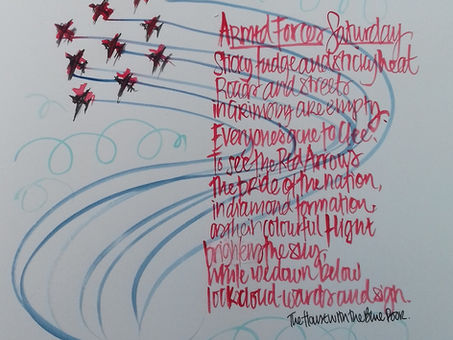 Armed Forces Saturday
Sticky fudge and sticky heat
Roads and streets
in Grimsby are empty
Everyones gone to Clee.
To see the Red Arrows
the pride of the nation,
in diamond formation
as their colourful flight
brightens the sky,
while we down below
look cloud-wards and sigh.
The House with the Blue Door.